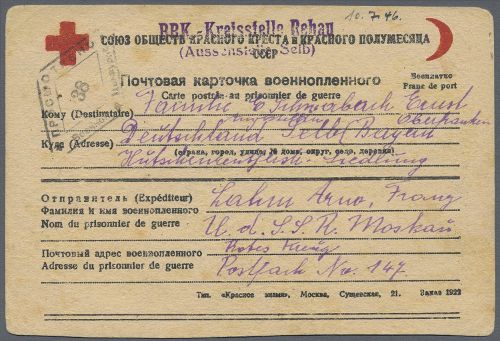 BRK - Kreisstelle Rehau
10.7.46.
(Aussenstelle Selb)
СОЮЗ ОБЩЕСТВ КРАСНОГО КРЕСТА и КРАСНОГО ПОЛУМЕСЯЦА
СССР
38
Почтовая карточка военнопленного
Бесплатно
Carte postale au prisonnier de guerre
Franc de port
Кому (Destinataire) Familie Ernst
Куда (Adresse) Deutschland Selb/Bayern Oberfranken
(страна, город, улица, № дома, округ, село, деревня)
Siedlung
Отправитель (Expéditeur)
Фамилия и имя военнопленного
Nom du prisonnier de guerre
Arno, Franz
U.d.S.S.R. Moskau
Почтовый адрес военнопленного
Rotes Kreuz
Adresse du prisonnier de guerre
Postfach No. 147.
Тип. «Красное знамя», Москва, Сущевская, 21. Заказ 1922